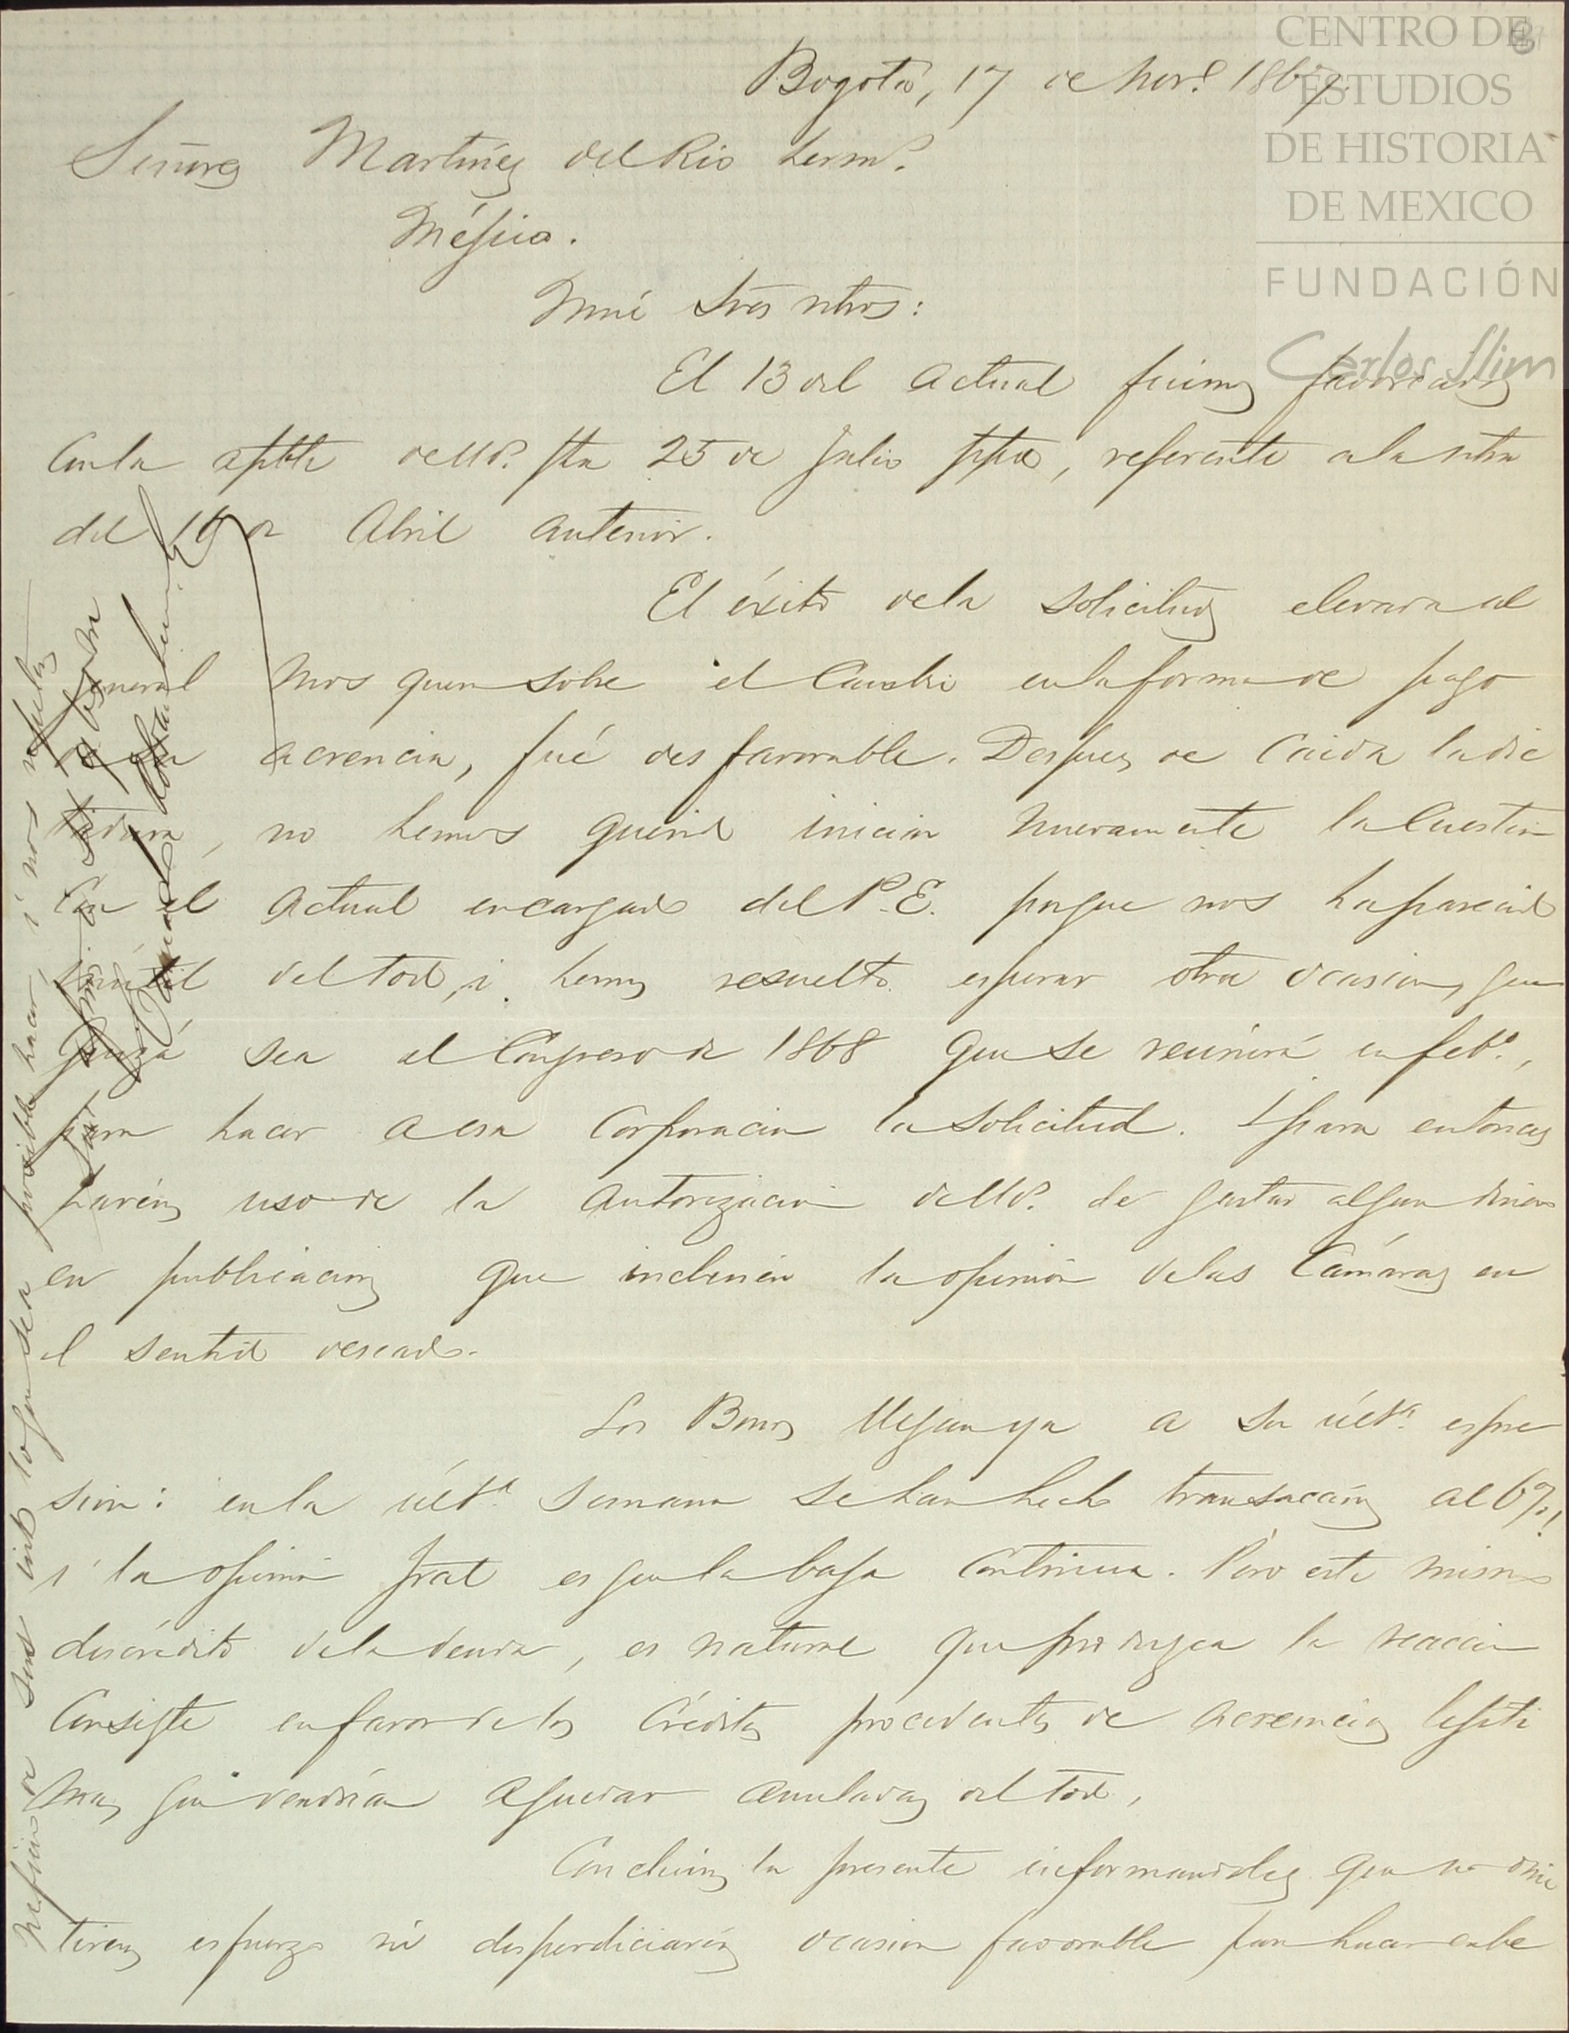 Bogotá, 17 de Nov.e 1867.
Señores Martínez del Rio herms.
Méjico.
Mui Sres ntros:
El 13 del actual fuimos favorecidos
con la aptble de Uds. fha 25 de Julio ppdo, referente a la ntra
del 16 de Abril anterior.
El éxito de la solicitud elevada al
General Mosquera sobre el cambio en la forma de pago
de su acrencia, fué desfavorable. Despues de caida la dic
tadura, no hemos querido iniciar nuevamente la cuestion
con el actual encargado del P.E. porque nos ha parecido
inútil del todo, i hemos resuelto esperar otra ocasion, que
quizá sea el Congreso de 1868 que se reunirá en feb.o,
para hacer a esa corporacion la solicitud. I para entonces
harémos uso de la autorizacion de Uds. de gastar algun dinero
en publicaciones que inclinen la opinion de las Cámaras en
el sentido deseado.
Los Bonos llegan ya a su últ.a espre
sion: en la últ.a semana se han hecho transacciones al 6%!
i la opinion jral es que la baja continua. Pero este mismo
descrédito de la deuda, es natural que produzca la reaccion
consigte en favor de los créditos procedentes de acrencias lejiti
mas, que vendrian a quedar anuladas del todo.
Concluimos la presente informandoles que no omi
tiremos esfuerzo ni desperdiciarémos ocasion favorable para hacer en be
neficio de sus ints. lo que sea posible hacer, i nos repetimos
CENTRO DE
ESTUDIOS
DE HISTORIA
DE MEXICO
FUNDACIÓN
Carlos Slim